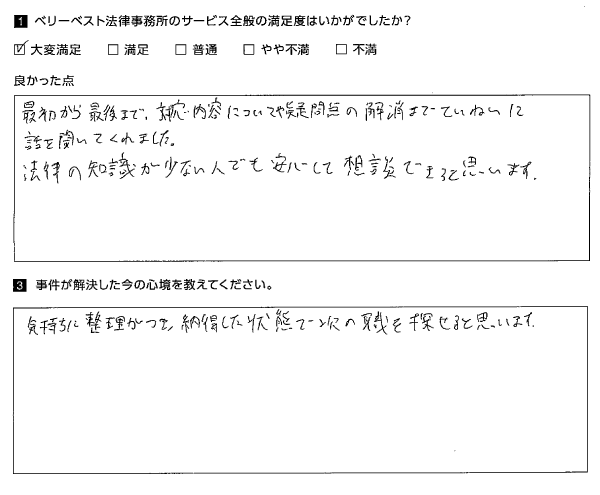 1 ベリーベスト法律事務所のサービス全般の満足度はいかがでしたか？
☑ 大変満足 □ 満足 □ 普通 □ やや不満 □ 不満
良かった点
最初から最後まで、内容についてや疑問点の解消までていねいに
話を聞いてくれました。
法律の知識が少ない人でも安心して想談できると思います。
3 事件が解決した今の心境を教えてください。
気持ちに整理がつき、納得した状態で次の職を探せると思います。